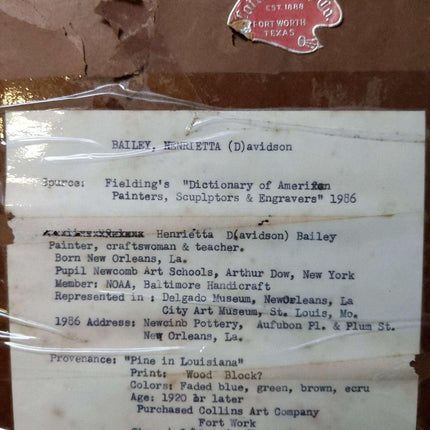 Co.
EST. 1888
FORT WORTH
TEXAS
BAILEY, HENRIETTA (D)avidson
Source: Fielding's "Dictionary of American
Painters, Scuplptors & Engravers" 1986
Henrietta D(avidson) Bailey
Painter, craftswoman & teacher.
Born New Orleans, La.
Pupil Newcomb Art Schools, Arthur Dow, New York
Member: NOAA, Baltimore Handicraft
Represented in : Delgado Museum, NewOrleans, La
City Art Museum, St. Louis, Mo.
1986 Address: Newcinb Pottery, Aufubon Pl. & Plum St.
New Orleans, La.
Provenance: "Pine in Louisiana"
Print: Wood Block?
Colors: Faded blue, green, brown, ecru
Age: 1920 or later
Purchased Collins Art Company
Fort Work